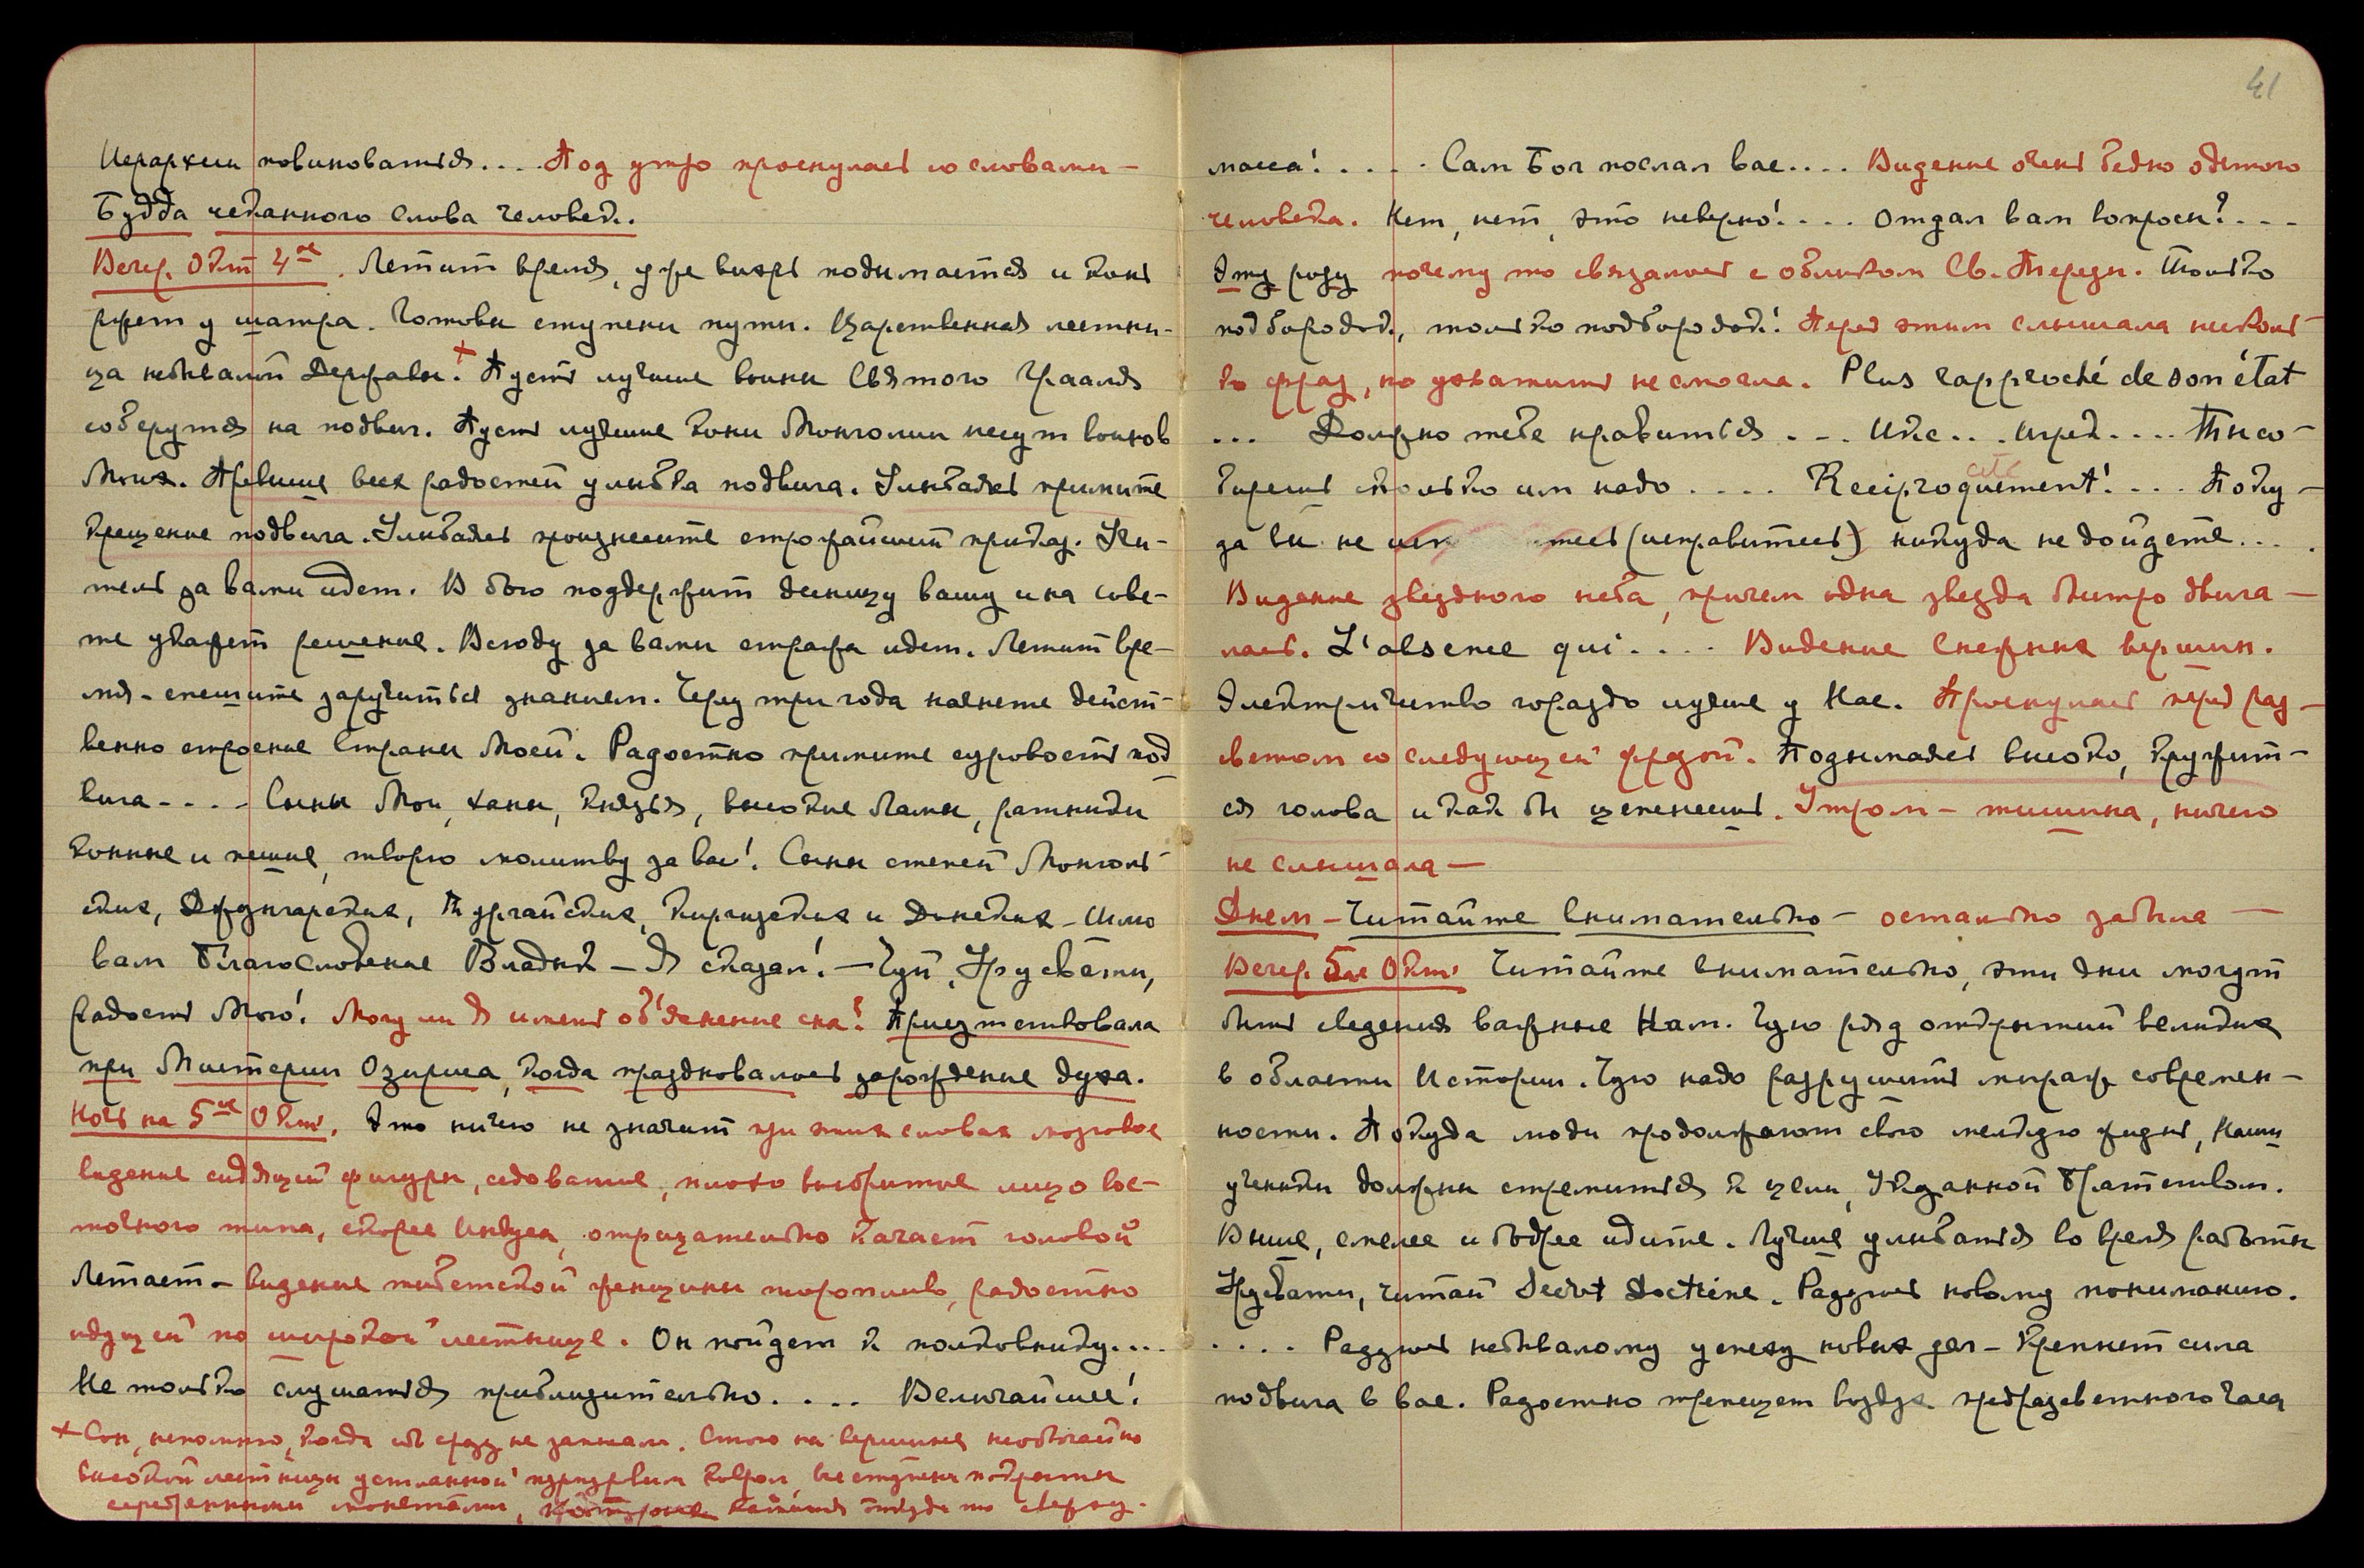 Иерархии повиноваться.... Под утро проснулась со словами –
Будда чеканного слова человек.
Вечер. Окт 4ое. Летит время, уже вихрь подымается и конь
ржет у шатра. Готовы ступени пути. Царственная лестни-
ца небывалой Державы.+ Пусть лучшие воины Святого Грааля
соберутся на подвиг. Пусть лучшие кони Монголии несут воинов
Моих. Превыше всех радостей улыбка подвига. Улыбаясь примите
крещение подвига. Улыбаясь произнесите строжайший приказ. Учи-
тель за вами идет. В бою поддержит десницу вашу и на сове-
те укажет решение. Всюду за вами стража идет. Летит вре-
мя – спешите заручиться знанием. Через три года начнете дейст-
венно строение Страны Моей. Радостно примите суровость под
вига.... Сыны Мои, ханы, князья, высокие Ламы, ратники
конные и пешие, творю молитву за вас! Сыны степей Монголь-
ских, Джунгарских, Тургайских, Киргизских и Донских – Шлю
вам Благословение Владык – Я сказал! – Чуй, Урусвати,
радость Мою! Могу ли Я иметь объяснение сна? Присутствовала
при Мистерии Озириса, когда праздновалось зарождение духа.
Ночь на 5ое Окт. Это ничего не значит при этих словах мозговое
видение сидящей фигуры, седоватое, плохо выбритое лицо вос-
точного типа, скорее Индуса, отрицательно качает головой
Летает – видение тибетской женщины торопливо, радостно
идущей по широкой лестнице. Он пойдет к полковнику....
Не только слушаться приблизительно.... Величайшее!
+ Сон, непомню, когда сразу не записала. Стою на вершине необычайно
высокой лестницы устланной пурпурным ковром все ступени покрыты
серебренными монетами, которые катятся откуда то сверху.
41
масса!..... Сам Бог послал вас.... Видение очень бедно одетого
человека. Нет, нет, это неверно!.... отдал вам вопросы?...
Эту розу почему то связалось с обликом Св. Терезы. Только
подбородок, только подбородок! Перед этим слышала несколь-
ко фраз, но ухватить не смогла. Plus rapproché de son état
... Должно тебе нравиться... Икс... Игрек.... Ты со-
бирешь сколько им надо.... Reciproquement!... Поку-
да вы не (исправитесь) никуда не дойдете....
Видение звездного неба, причем одна звезда быстро двига-
лась. L'absence qui.... Видение Снежных вершин.
Электричество гораздо лучше у Нас. Проснулась перед раз-
светом со следующей фразой. Подымаясь высоко, кружит-
ся голова и как бы цепенеешь. Утром – тишина, ничего
не слышала –
Днем – Читайте внимательно – остальное забыла –
Вечер. 5ое Окт. Читайте внимательно, эти дни могут
быть сведения важные Нам. Чую ряд открытий великих
в области Истории. Чую надо разрушить мираж современ-
ности. Покуда люди продолжают свою мелкую жизнь, Наши
ученики должны стремиться к цели, Указанной Братством.
Выше, смелее и бодрее идите. Лучше улыбаться во время работы
Урусвати, читай Secret Doctrine. Радуюсь новому пониманию.
.... Радуюсь небывалому успеху новых дел – Крепнет сила
подвига в вас. Радостно трепещет воздух предразсветного часа